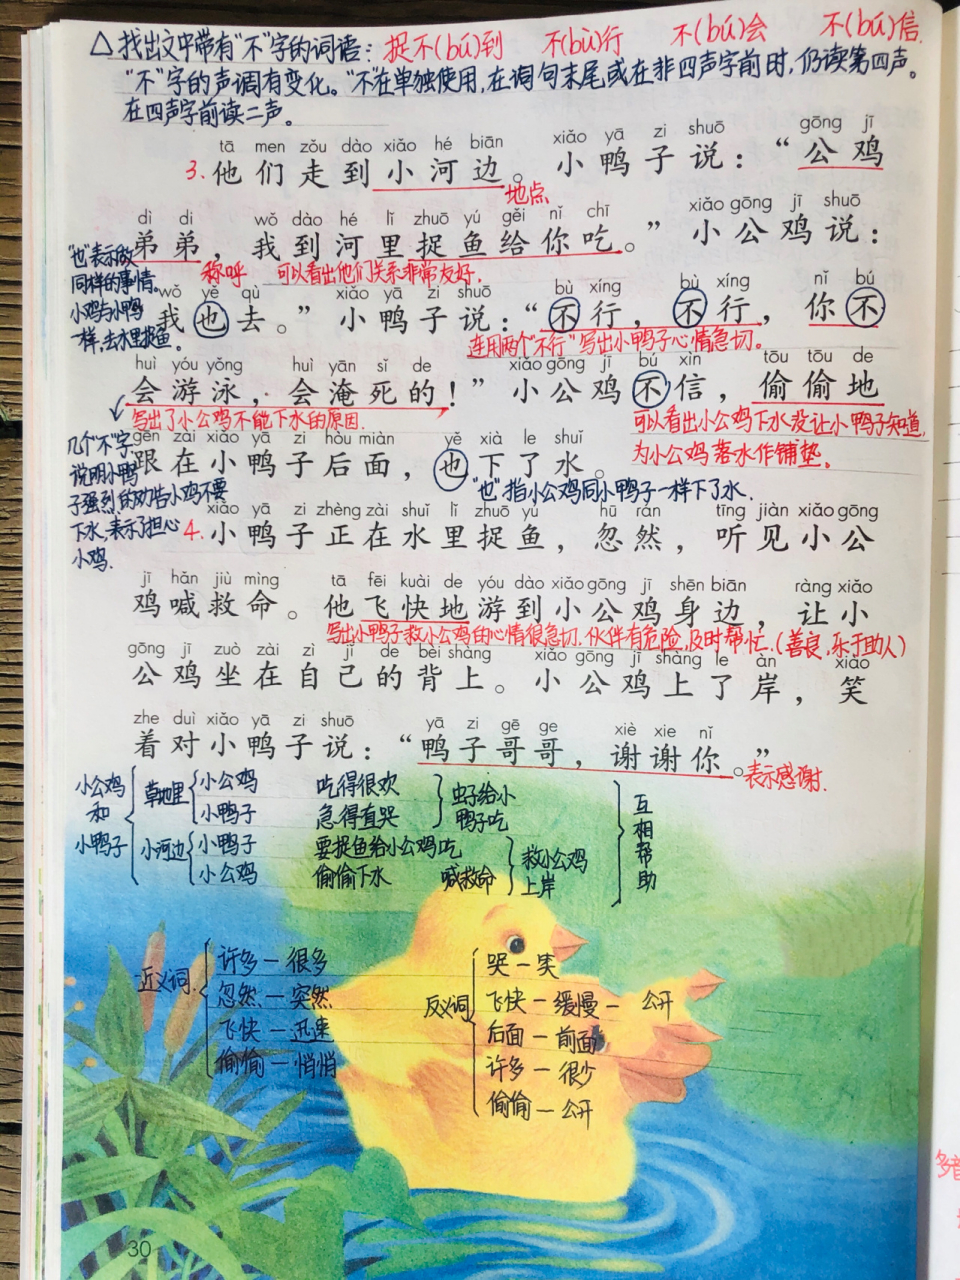 △找出文中带有“不”字的词语：捉不(bú)到 不(bù)行 不(bú)会 不(bú)信.
“不”字的声调有变化。“不”在单独使用,在词句末尾或在非四声字前时,仍读第四声。
在四声字前读二声。
tā men zǒu dào xiǎo hé biān xiǎo yā zi shuō gōng jī
3.他们走到小河边。小鸭子说：“公鸡
地点
dì di wǒ dào hé lǐ zhuō yú gěi nǐ chī xiǎo gōng jī shuō
弟弟，我到河里捉鱼给你吃。”小公鸡说：
称呼 可以看出他们关系非常友好.
“也”表示做
同样的事情。
小鸡与小鸭
一样,去水里捉鱼。
wǒ yě qù xiǎo yā zi shuō bù xíng bù xíng nǐ bú
我也去。”小鸭子说：“不行，不行，你不
连用两个“不行”写出小鸭子心情急切。
huì yóu yǒng huì yān sǐ de xiǎo gōng jī bú xìn tōu tōu de
会游泳，会淹死的！”小公鸡不信，偷偷地
写出了小公鸡不能下水的原因.
可以看出小公鸡下水没让小鸭子知道,
为小公鸡落水作铺垫。
gēn zài xiǎo yā zi hòu miàn yě xià le shuǐ
跟在小鸭子后面，也下了水。
“也”指小公鸡同小鸭子一样下了水.
几个“不”字
说明小鸭
子强烈的劝告小鸡不要
下水,表示了担心
小鸡.
xiǎo yā zi zhèng zài shuǐ lǐ zhuō yú hū rán tīng jiàn xiǎo gōng
4.小鸭子正在水里捉鱼，忽然，听见小公
jī hǎn jiù mìng tā fēi kuài de yóu dào xiǎo gōng jī shēn biān ràng xiǎo
鸡喊救命。他飞快地游到小公鸡身边，让小
写出小鸭子救小公鸡的心情很急切.伙伴有危险,及时帮忙.(善良,乐于助人)
gōng jī zuò zài zì jǐ de bèi shàng xiǎo gōng jī shàng le àn xiào
公鸡坐在自己的背上。小公鸡上了岸，笑
zhe duì xiǎo yā zi shuō yā zi gē ge xiè xie nǐ
着对小鸭子说：“鸭子哥哥，谢谢你。”
表示感谢.
小公鸡
和
小鸭子
草地里
小公鸡 吃得很欢
小鸭子 急得直哭
虫子给小
鸭子吃
小河边
小鸭子 要捉鱼给小公鸡吃
小公鸡 偷偷下水 喊救命
救小公鸡
上岸
互
相
帮
助
近义词.
许多—很多
忽然—突然
飞快—迅速
偷偷—悄悄
反义词
哭—笑
飞快—缓慢—公开
后面—前面
许多—很少
偷偷—公开
30
多音